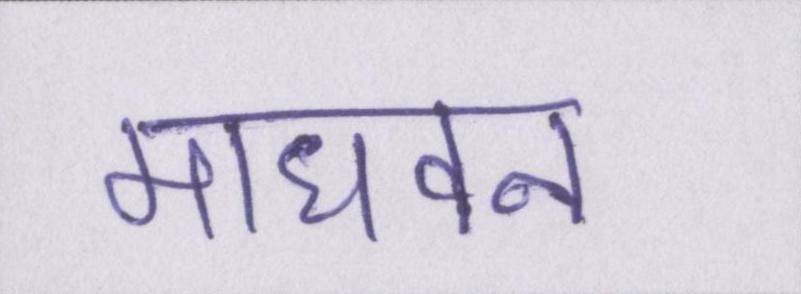 माधवन